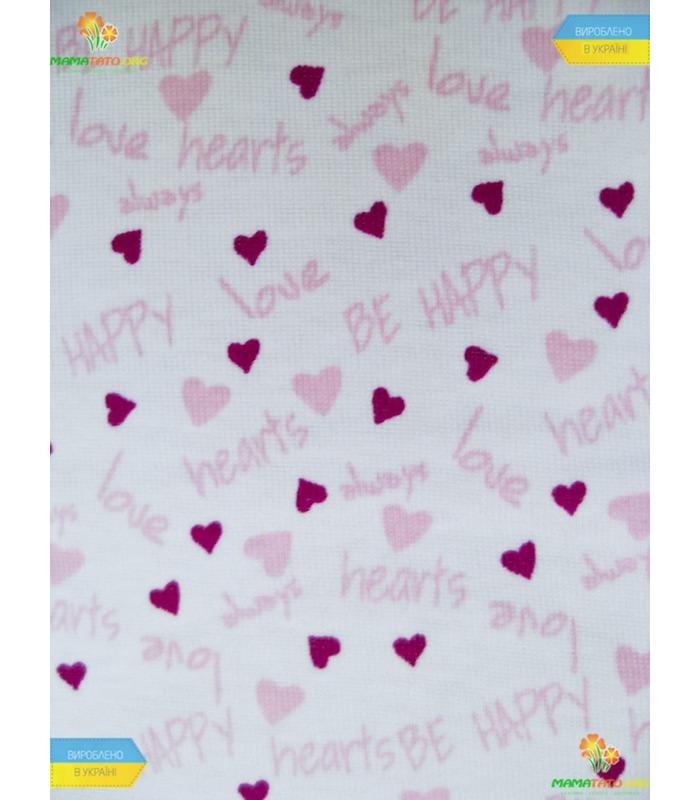 BE HAPPY
MAMATATO.ORG
BE HAPPY
ВИРОБЛЕНО
В УКРАЇНІ
love
hearts
always
love
hearts
always
always
love
HAPPY
BE HAPPY
hearts
always
love
hearts
love
always
hearts
love
arts
love
HAPPY
hearts
BE HAPPY
ВИРОБЛЕНО
В УКРАЇНІ
MAMATATO.ORG